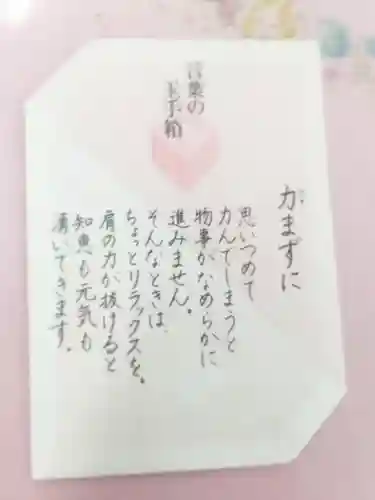 言葉の
玉手箱
力まずに
思いつめて
力んでしまうと
物事がなめらかに
進みません。
そんなときは、
ちょっとリラックスを。
肩の力が抜けると
知恵も元気も
湧いてきます。